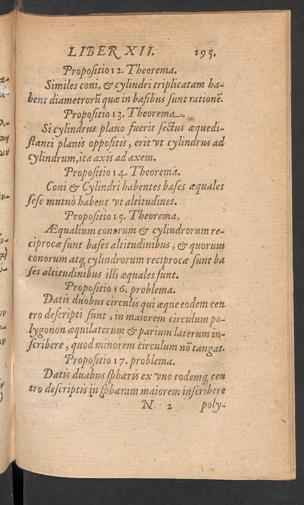 LIBER XII. 195.
Propositio 12. Theorema.
Similes coni, & cylindri triplicatam ha-
bent diametrorũ quæ in basibus sunt rationẽ.
Propositio 13. Theorema.
Si cylindrus plano fuerit sectus æquedi-
stanti planis oppositis, erit vt cylindrus ad
cylindrum, ita axis ad axem.
Propositio 14. Theorema.
Coni & Cylindri habentes bases æquales
sese mutuò habent vt altitudines.
Propositio 15. Theorema.
Æqualium conorum & cylindrorum re-
ciprocæ sunt bases altitudinibus, & quorum
conorum atq; cylindrorum reciprocæ sunt ba
ses altitudinibus illi æquales sunt.
Propositio 16. problema.
Datis duobus circulis qui æque eodem cen
tro descripti sunt, in maiorem circulum po-
lygonon æquilaterum & parium laterum in-
scribere, quod minorem circulum nõ tangat.
Propositio 17. problema.
Datis duabus sphæris ex vno eodemq; cen
tro descriptis in sphæram maiorem inscribere
N 2 poly-